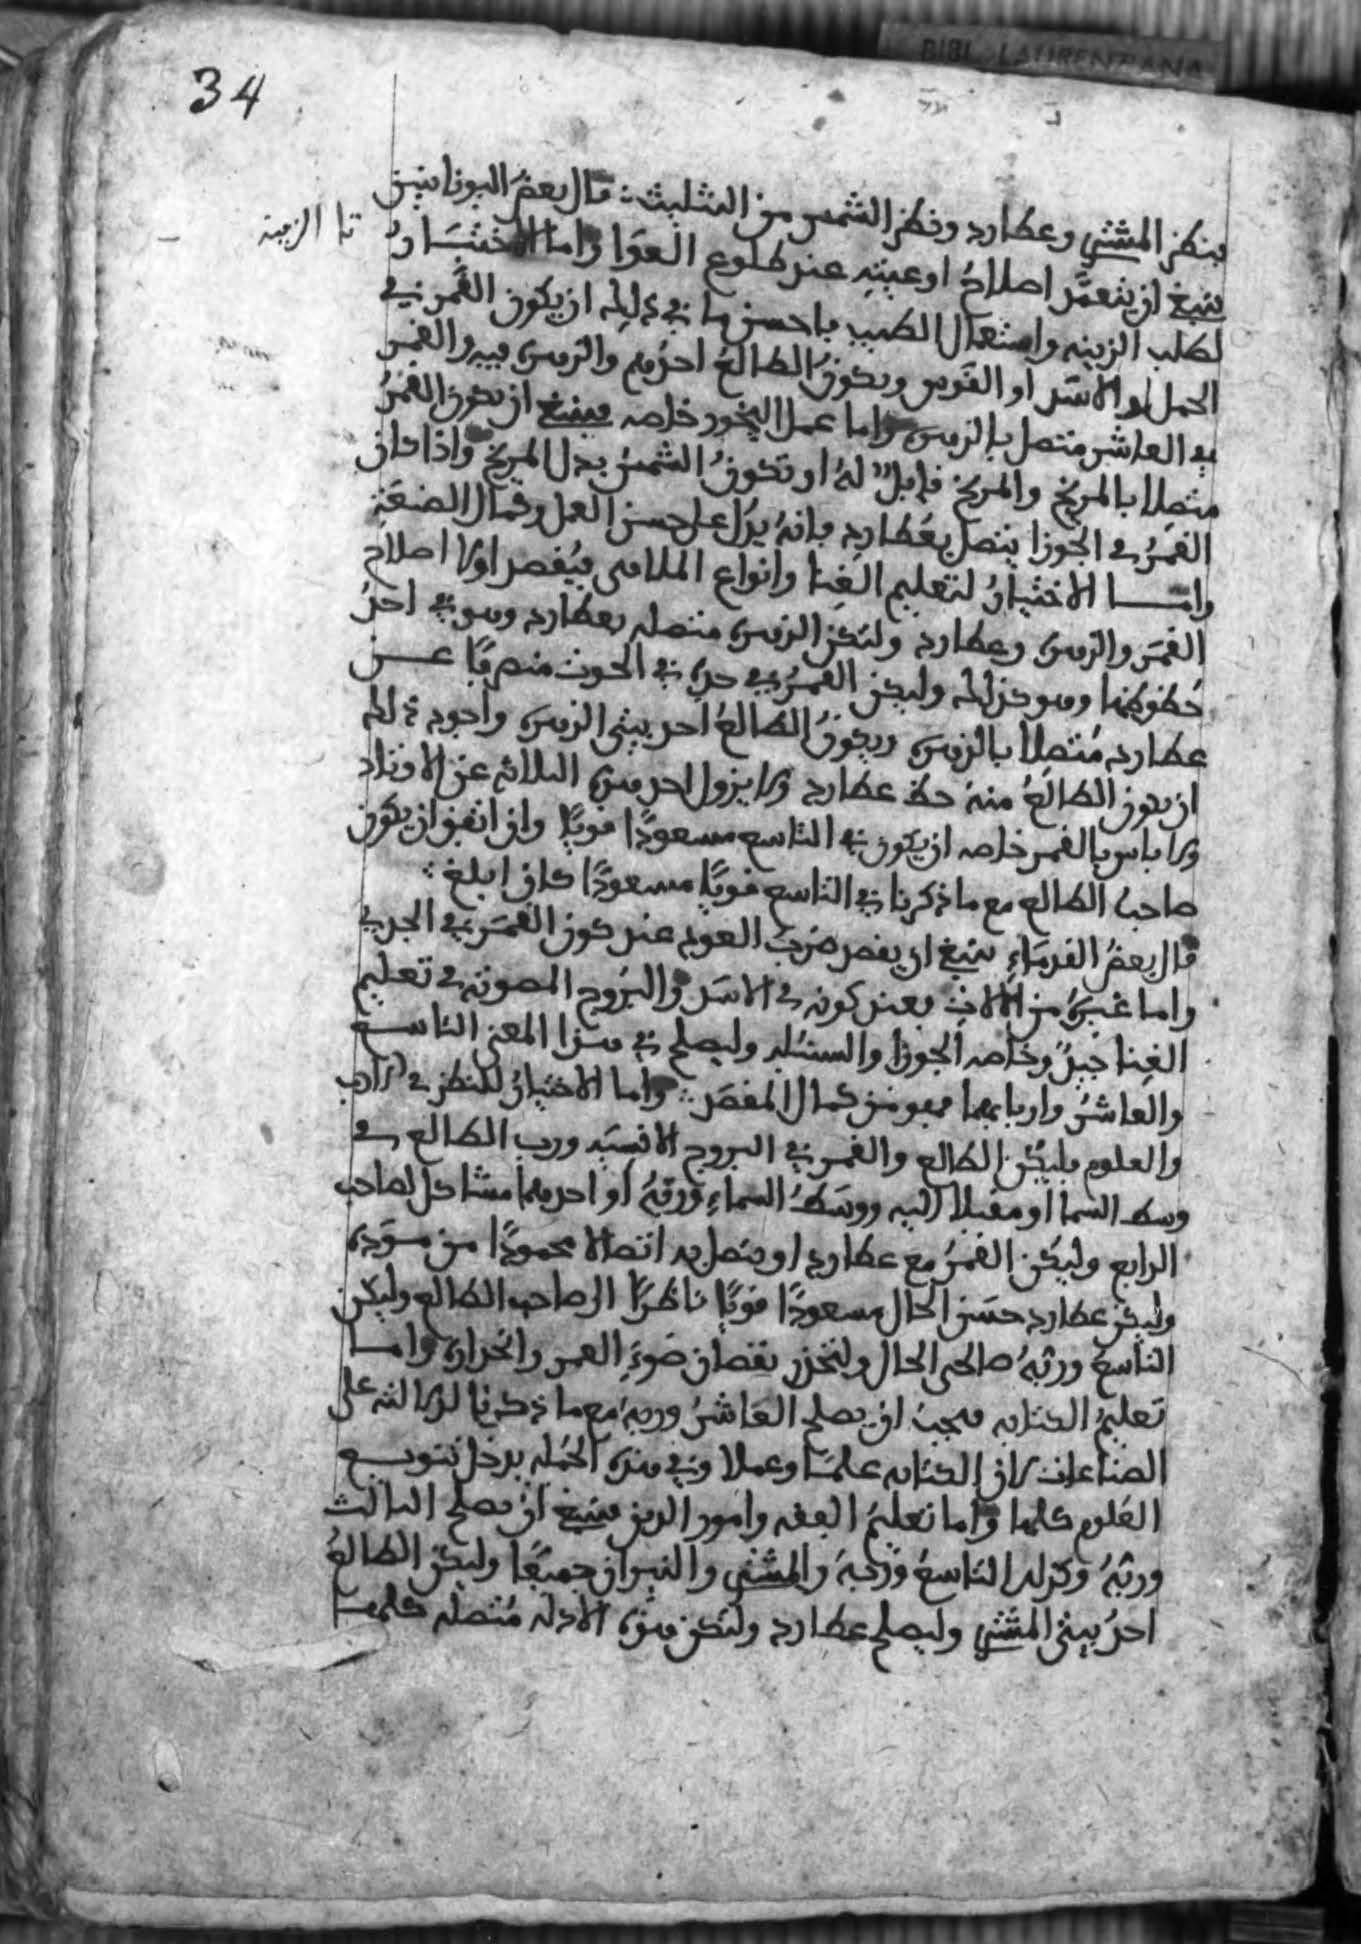 BIBL. LAURENZIANA
34
بنظر المشتري وعطارد ونظر الشمس من التثليث قال بعض اليونانيين
ينبغي ان يتعمد اصلاح او عيته عند طلوع العوا واما الاختيار
تا الزينه
لطلب الزينه واستعمال الطيب فاحسن ما في ذلك ان يكون القمر في
الحمل او الاسد او القوس ويكون الطالع احدهم والزهره فيه والقمر
في العاشر متصل بالزهره واما عمل البخور خاصه فينبغي ان يكون القمر
متصلا بالمريخ والمريخ قابل له او تكون الشمس بدل المريخ واذا كان
القمر في الجوزا يتصل بعطارد فانه يدل على حسن العمل وكمال الصنعه
واما الاختيار لتعليم الغنا وانواع الملاهي فيقصد اولا اصلاح
القمر والزهره وعطارد ولتكن الزهره متصله بعطارد وهو في احد
حظوظها وهو كذلك وليكن القمر في حده في الحوت منصرفا عن
عطارد متصلا بالزهره ويكون الطالع احد بيتي الزهره واجود ذلك
ان يكون الطالع منه حظ عطارد ولا يزول احد هذه الثلاثه عن الاوتاد
ولا باس بالقمر خاصه ان يكون في التاسع مسعودا قويا وان اتفق ان يكون
صاحب الطالع مع ما ذكرنا في التاسع قويا مسعودا كان ابلغ
قال بعض القدماء ينبغي ان يقصد ضرب العود عند كون القمر في الجدي
واما غيره من الالات فعند كونه في الاسد والبروج المصوته في تعليم
الغنا جيد وخاصه الجوزا والسنبله وليصلح في هذا المعنى التاسع
والعاشر واربابهما فهو من كمال المقصد واما الاختيار للنظر في الادب
والعلوم فليكن الطالع والقمر في البروج الانسيه ورب الطالع في
وسط السما او مقبلا اليه ووسط السماء وربه او احدهما مشاكل لصاحب
الرابع وليكن القمر مع عطارد او يتصل به اتصالا محمودا من موده
وليكن عطارد حسن الحال مسعودا قويا ناظرا الى صاحب الطالع وليكن
التاسع وربه صالحي الحال ولتحذر نقصان ضوء القمر وانحداره واما
تعليم الكتابه فيجب ان يصلح العاشر وربه مع ما ذكرنا لدلالته على
الصناعات لان الكتابه علما وعملا وفي هذه الجمله يدخل تنويع
العلوم كلها واما تعليم الفقه وامور الدين فينبغي ان يصلح الثالث
وربه وكذلك التاسع وربه والمشتري والنيران جميعا وليكن الطالع
احد بيتي المشتري وليصلح عطارد ولتكن هذه الادله متصله كلها